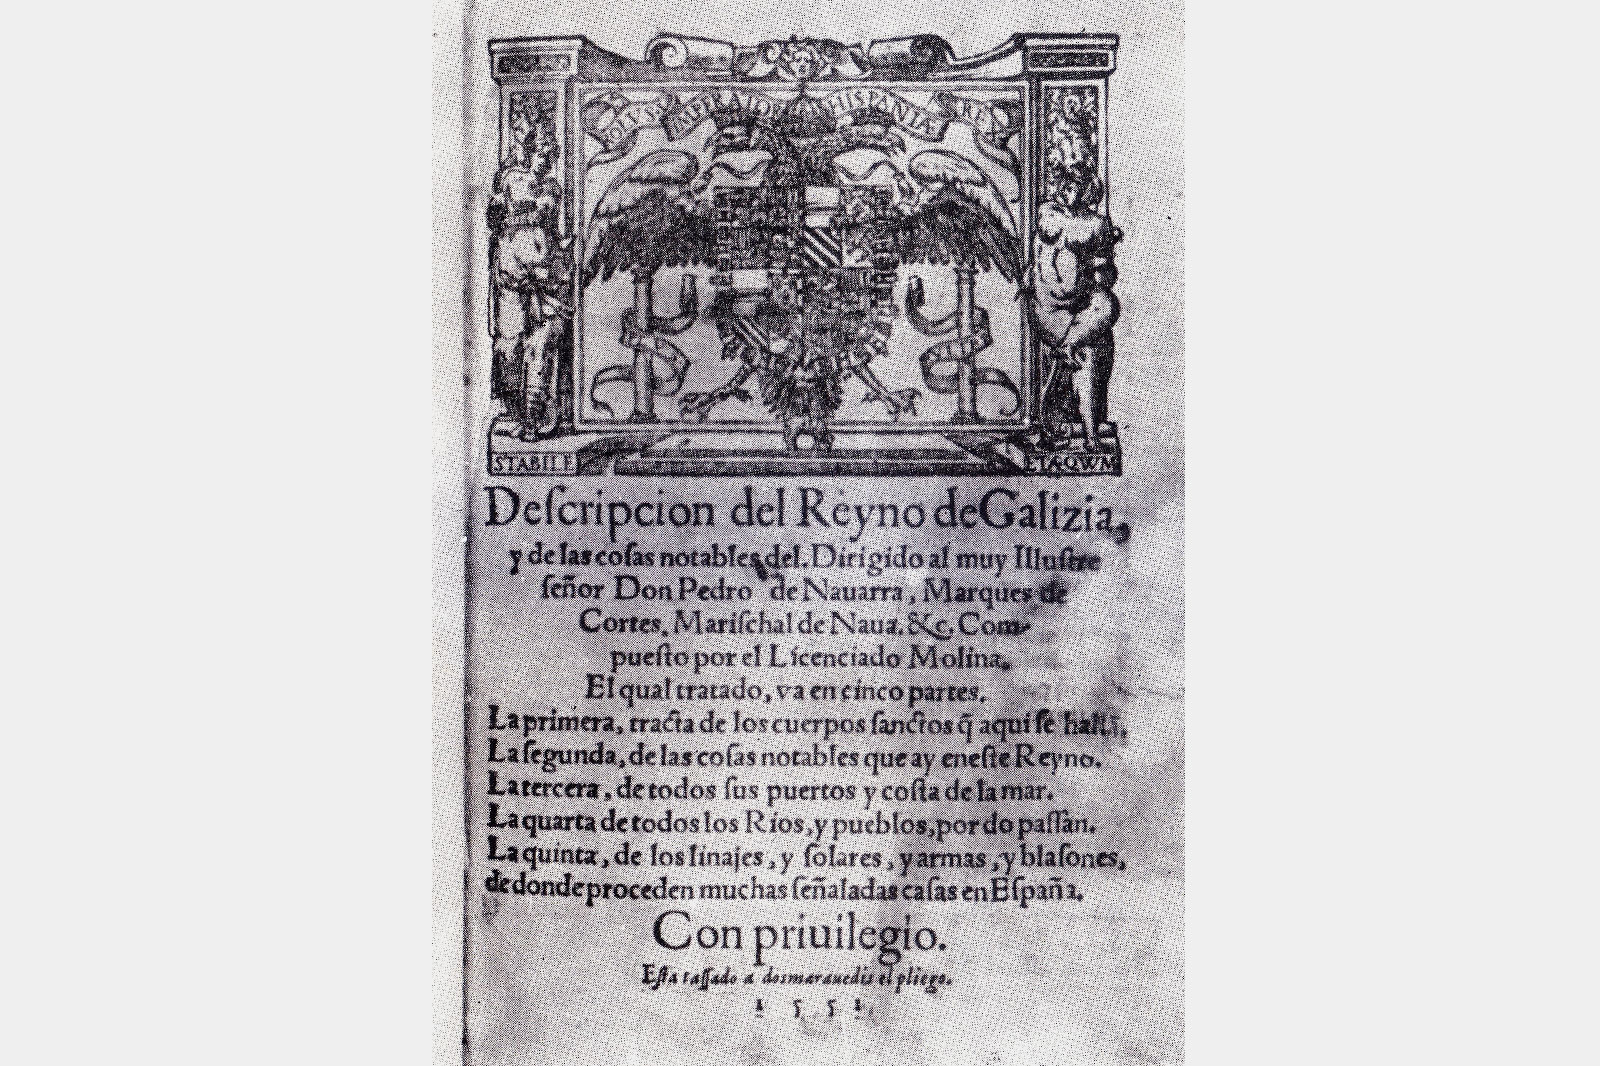 IMPERATOR HISPANIÆ REX
STABILE
ETÆQVVM
Deſcripcion del Reyno de Galizia,
y de las coſas notables del. Dirigido al muy Illuſtre
ſeñor Don Pedro de Nauarra, Marques de
Cortes, Mariſchal de Naua. &c. Com-
pueſto por el Licenciado Molina.
El qual tratado, va en cinco partes.
La primera, tracta de los cuerpos ſanctos q̃ aqui ſe
La ſegunda, de las coſas notables que ay eneſte Reyno.
La tercera, de todos ſus puertos y coſta de la mar.
La quarta de todos los Rios, y pueblos, por do paſſan.
La quinta, de los linajes, y ſolares, y armas, y blaſones,
de donde proceden muchas ſeñaladas caſas en Eſpaña.
Con priuilegio.
Eſta taſſado a dosmarauedis el pliego.
1 5 5 1